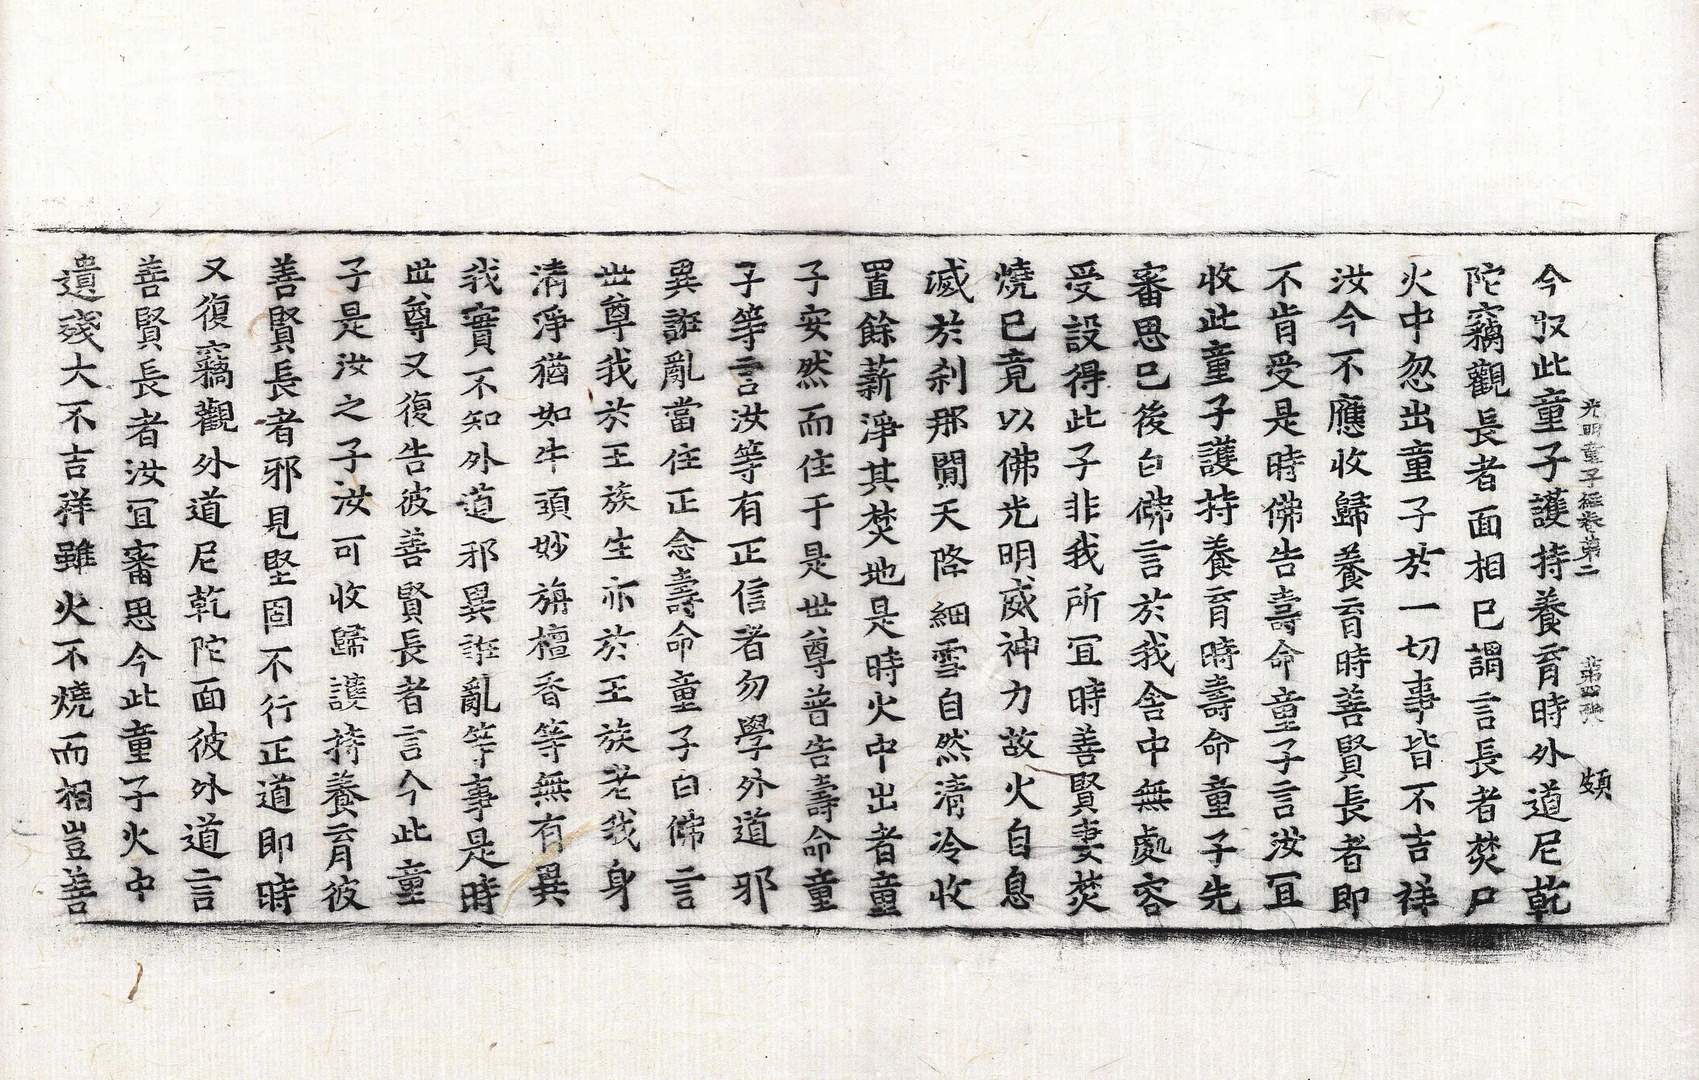 光明童子經卷第二 第四張 頗
今収此童子護持養育時外道尼乾
陀竊觀長者面相已謂言長者焚尸
火中忽出童子於一切事皆不吉祥
汝今不應收歸養育時善賢長者即
不肯受是時佛告壽命童子言汝冝
收此童子護持養育時壽命童子先
審思已後白佛言於我舍中無處容
受設得此子非我所冝時善賢妻焚
燒已竟以佛光明威神力故火自息
滅於刹那閒天降細雪自然清冷收
置餘薪淨其焚地是時火中出者童
子安然而住于是世尊普告壽命童
子等言汝等有正信者勿學外道邪
異誑亂當住正念壽命童子白佛言
世尊我於王族生亦於王族老我身
清淨猶如牛頭妙旃檀香等無有異
我實不知外道邪異誑亂等事是時
世尊又復告彼善賢長者言今此童
子是汝之子汝可收歸護持養育彼
善賢長者邪見堅固不行正道即時
又復竊觀外道尼乾陀面彼外道言
善賢長者汝冝審思今此童子火中
遺殘大不吉祥雖火不燒而相豈善